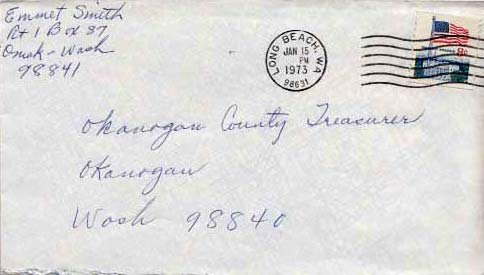 Emmet Smith
Rt 1 Box 87
Omak - Wash
98841
LONG BEACH, WA
JAN 15
PM
1973
98631
8c
Okanogan County Treasurer
Okanogan
Wash 98840